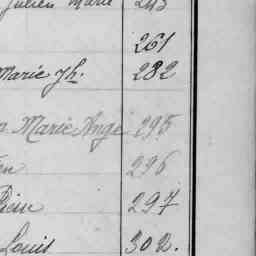 Julien Marie 243
261
Marie Jh. 282
Marie Ange 295
296
297
Louis 302.